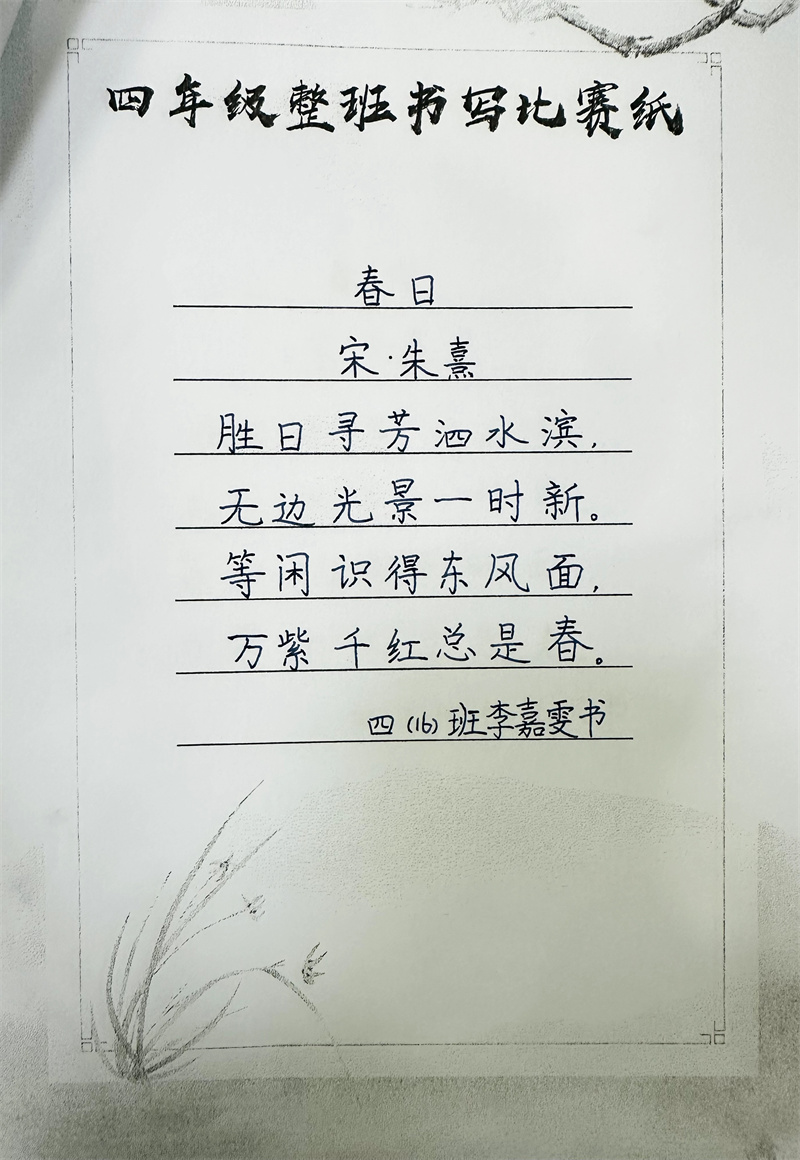 四年级整班书写比赛纸
春日
宋·朱熹
胜日寻芳泗水滨，
无边光景一时新。
等闲识得东风面，
万紫千红总是春。
四（16）班李嘉雯书